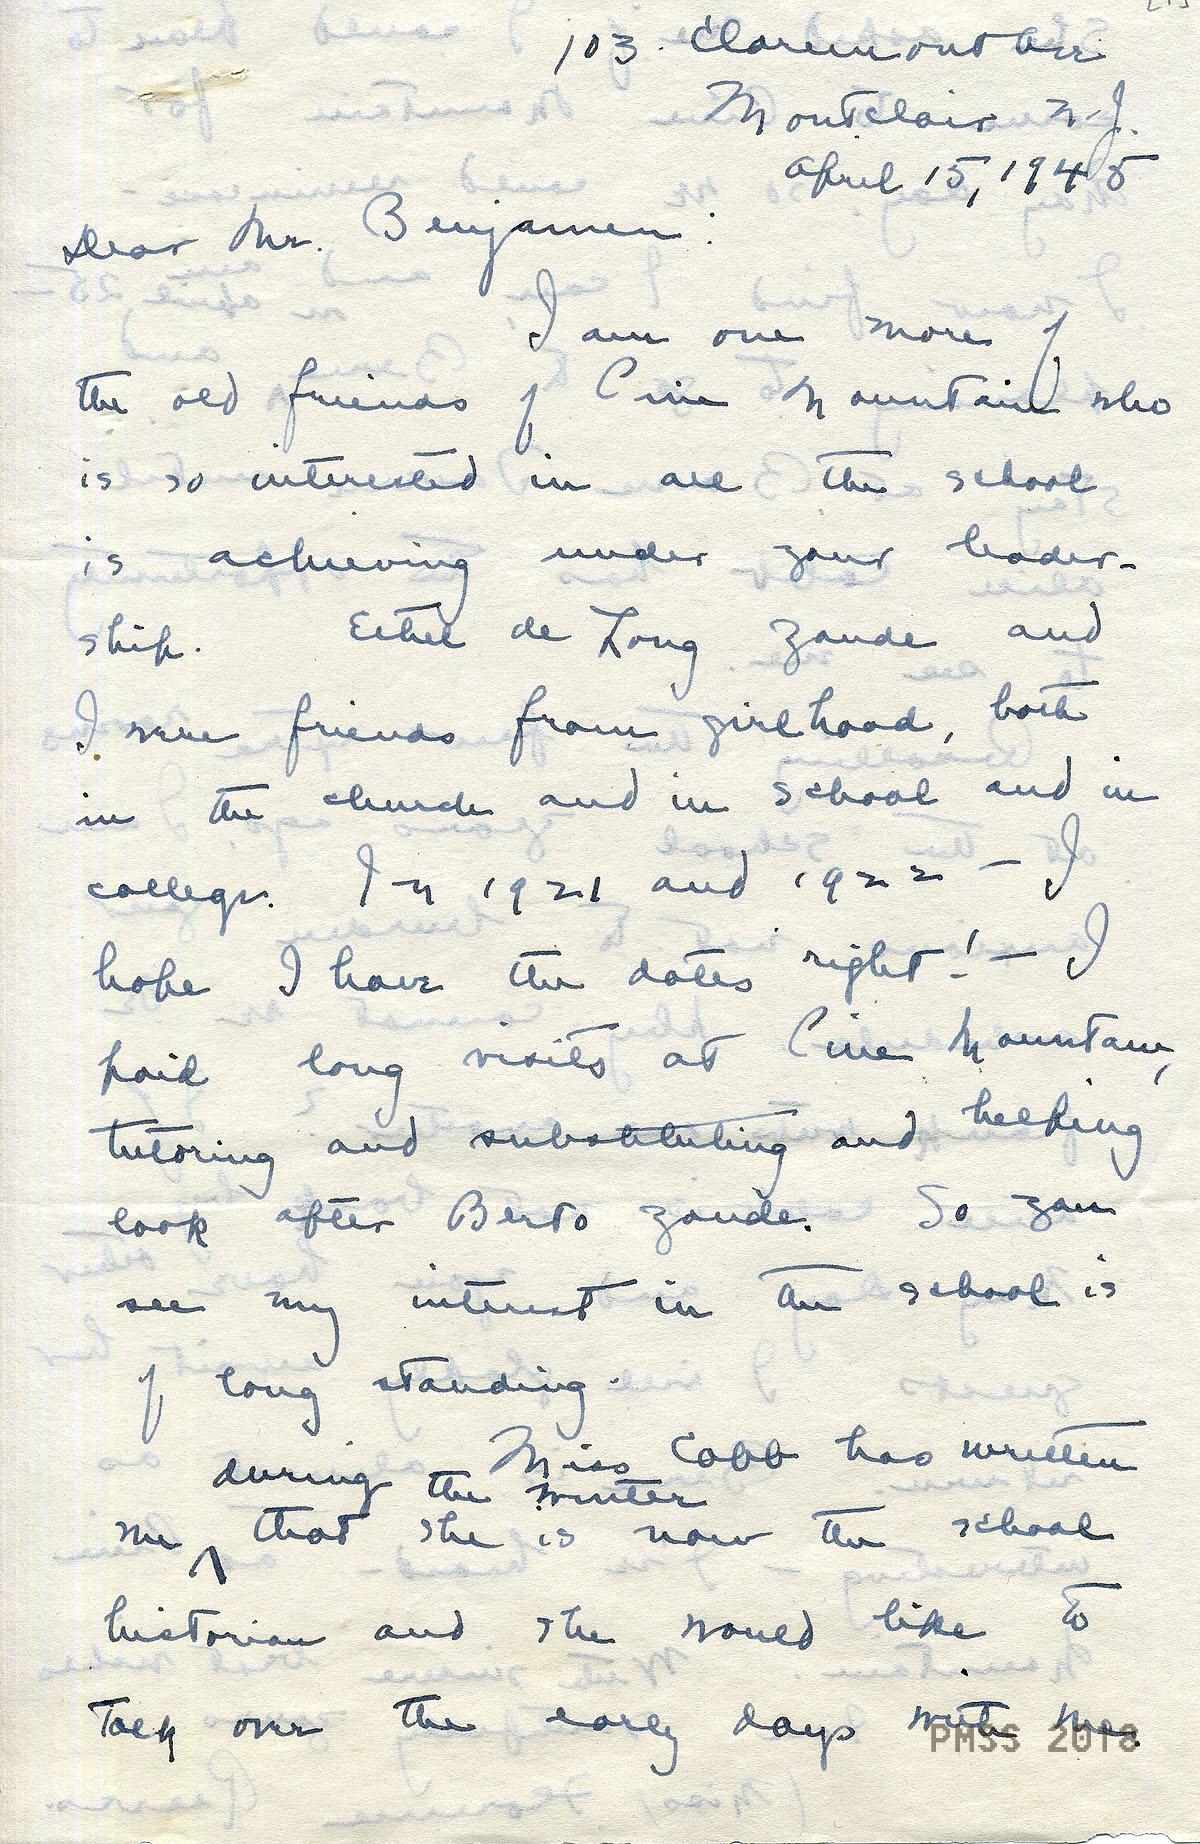 103 Claremont Ave
Montclair N.J.
April 15, 1948
Dear Mr. Benjamin:
I am one more of
the old friends of Pine Mountain who
is so interested in all the school
is achieving under your leader-
ship. Ethel de Long Zande and
I were friends from girlhood, both
in the church and in school and in
college. In 1921 and 1922 – I
hope I have the dates right! – I
paid long visits at Pine Mountain,
tutoring and substituting and helping
look after Berto Zande. So you
see my interest in the school is
of long standing.
Miss Cobb has written
during the winter
me ^ that she is now the school
historian and she would like to
talk over the early days with me.
PMSS 2018